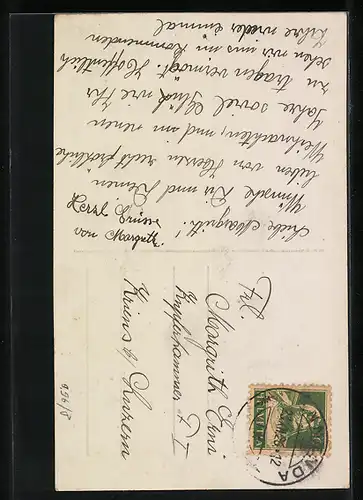 Liebe Margrith!
Wünsche Dir und Deinen
lieben von Herzen recht fröhliche
Weihnachten, und im neuen
Jahre soviel Glück wie Ihr
zu tragen vermögt. Hoffentlich
sehen wir uns im kommenden
Jahre wieder einmal
Herzl. Grüsse
von Margrith.
Frl.
Margrith Erni
Kupferhammer
Kriens b/ Luzern
HELVETIA
12